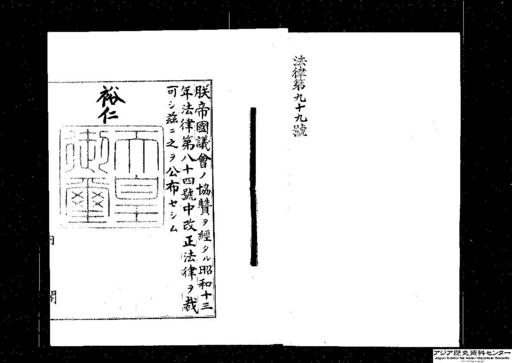 法律第九十九號
朕帝國議會ノ協贊ヲ經タル昭和十三
年法律第八十四號中改正法律ヲ裁
可シ茲ニ之ヲ公布セシム
裕仁
天皇
御璽
内閣
アジア歴史資料センター
Japan Center for Asian Historical Records